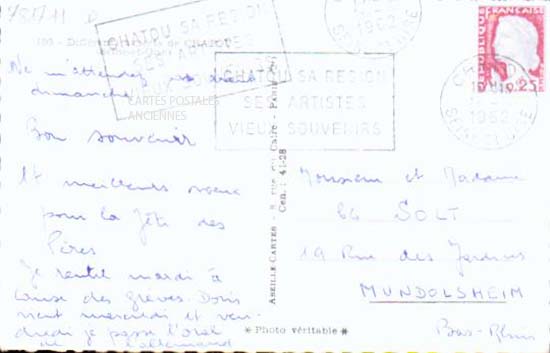 78711
CHATOU SA REGION
SES ARTISTES
VIEUX SOUVENIRS
CHATOU SA REGION
SES ARTISTES
VIEUX SOUVENIRS
CARTES POSTALES
ANCIENNES
REPUBLIQUE FRANÇAISE
0,25
CHATOU
1962
Ne m'attendez pas avant
dimanche
Bon souvenir
Et meilleurs vœux
pour la fête des
Pères
Je rentre mardi à
cause des grèves. Dois
vient mercredi et ven-
dredi je passe l'oral
de l'allemand
ABEILLE-CARTES - 8 rue du Caire - Paris
Cen. : 41-28
* Photo véritable *
Monsieur et Madame
SOLT
19 Rue des Jardins
MUNDOLSHEIM
Bas-Rhin